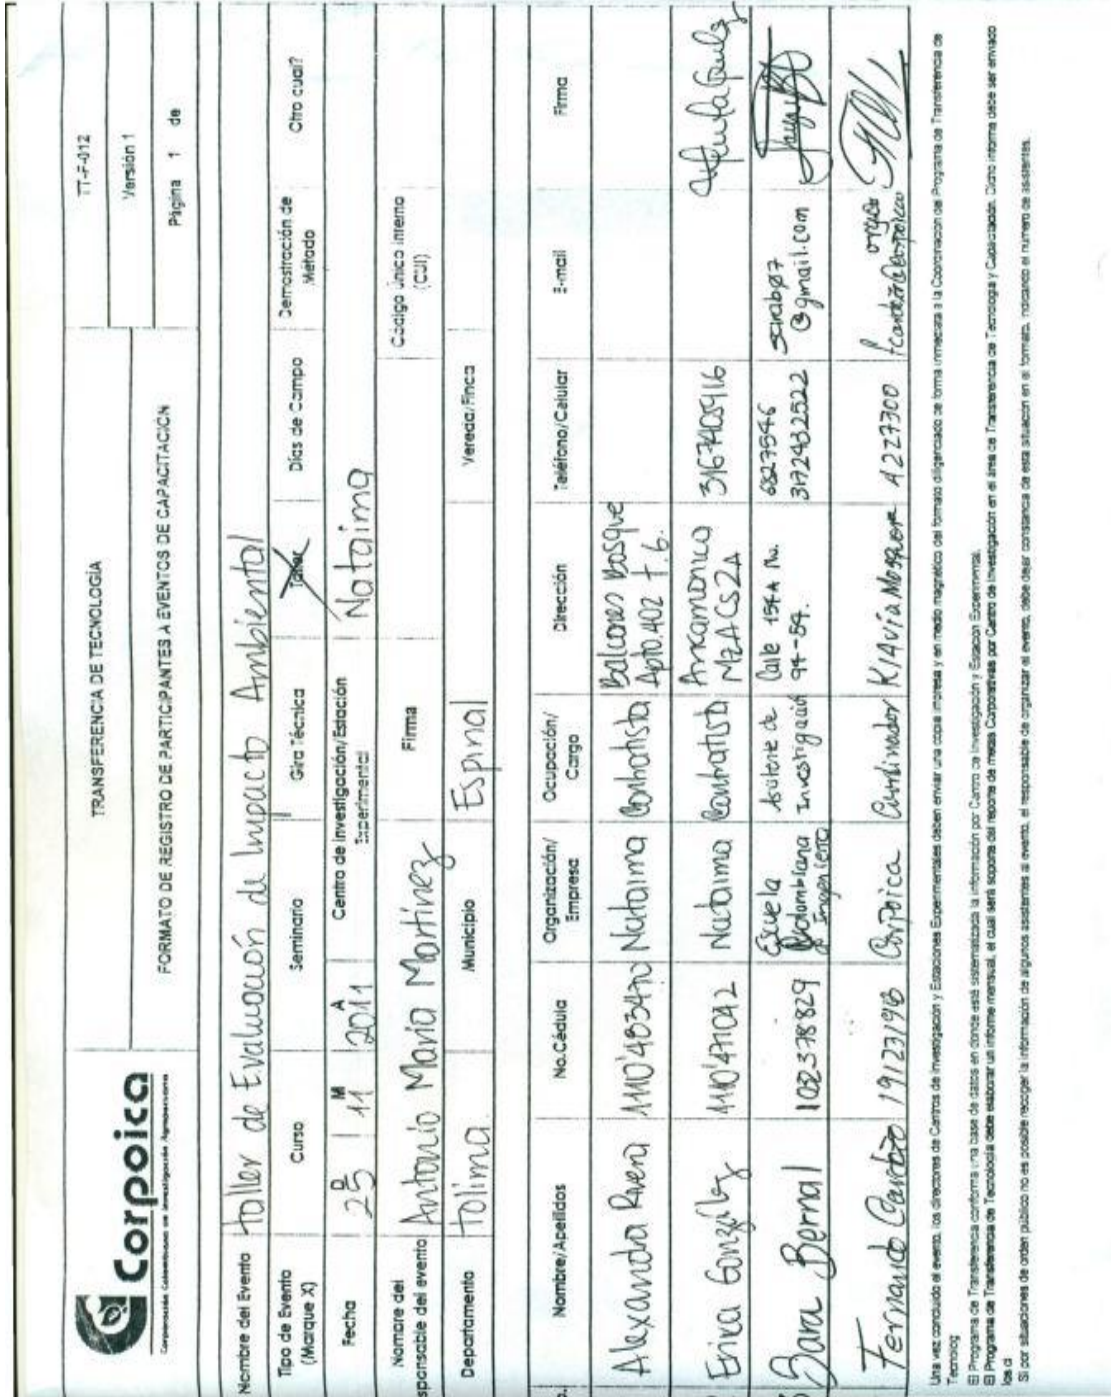 Corpoica
Corporación Colombiana de Investigación Agropecuaria
TRANSFERENCIA DE TECNOLOGÍA
FORMATO DE REGISTRO DE PARTICIPANTES A EVENTOS DE CAPACITACIÓN
TT-F-012
Versión 1
Página 1 de
Nombre del Evento taller de Evaluación de Impacto Ambiental
Tipo de Evento (Marque X) Curso Seminario Gira Técnica Taller Días de Campo Demostración de Método Otro cual?
Fecha D 25 M 11 A 2011 Centro de Investigación/Estación Experimental Nataima
Nombre del
sponsable del evento Antonio María Martínez Firma Código único interno (CUI)
Departamento Tolima Municipio Espinal Vereda/Finca
Nombre/Apellidos No.Cédula Organización/Empresa Ocupación/Cargo Dirección Teléfono/Celular E-mail Firma
Alexandra Rivera 1110'483470 Nataima Contratista Balcones Bosque Apto.402 t.6.
Erica González 1110'471042 Nataima Contratista MZACS2A 3167405916
Sara Bernal 1032378829 Escuela Colombiana de Ingeniería Investigación Calle 154A No. 94-54. 6827546 3172432522 sarab07@gmail.com
Fernando 19123198 Corpoica Coordinador 4227300
Una vez concluido el evento, los directores de Centros de Investigación y Estaciones Experimentales deben enviar una copia impresa y en medio magnético del formato diligenciado de forma inmediata a la Coordinación del Programa de Transferencia de
Tecnolog
El Programa de Transferencia conforma una base de datos en donde está sistematizada la información por Centro de Investigación y Estación Experimental.
El Programa de Transferencia de Tecnología debe elaborar un informe mensual, el cual será soporte del reporte de metas Corporativas por Centro de Investigación en el área de Transferencia de Tecnología y Capacitación. Dicho informe debe ser enviado
los d
Si por situaciones de orden público no es posible recoger la información de algunos asistentes al evento, el responsable de organizar el evento, debe dejar constancia de esta situación en el formato, indicando el numero de asistentes.